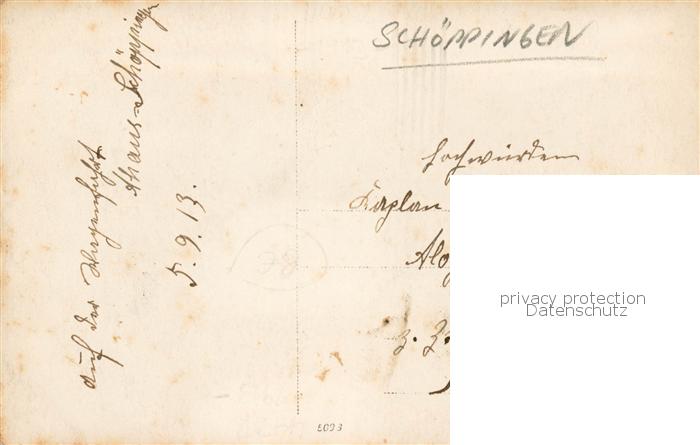 SCHÖPPINGEN
auf der Wagenfahrt
Ahaus-Schöppingen
5.9.13.
Hochwürden
Kaplan
Alo
z. Z.
privacy protection
Datenschutz